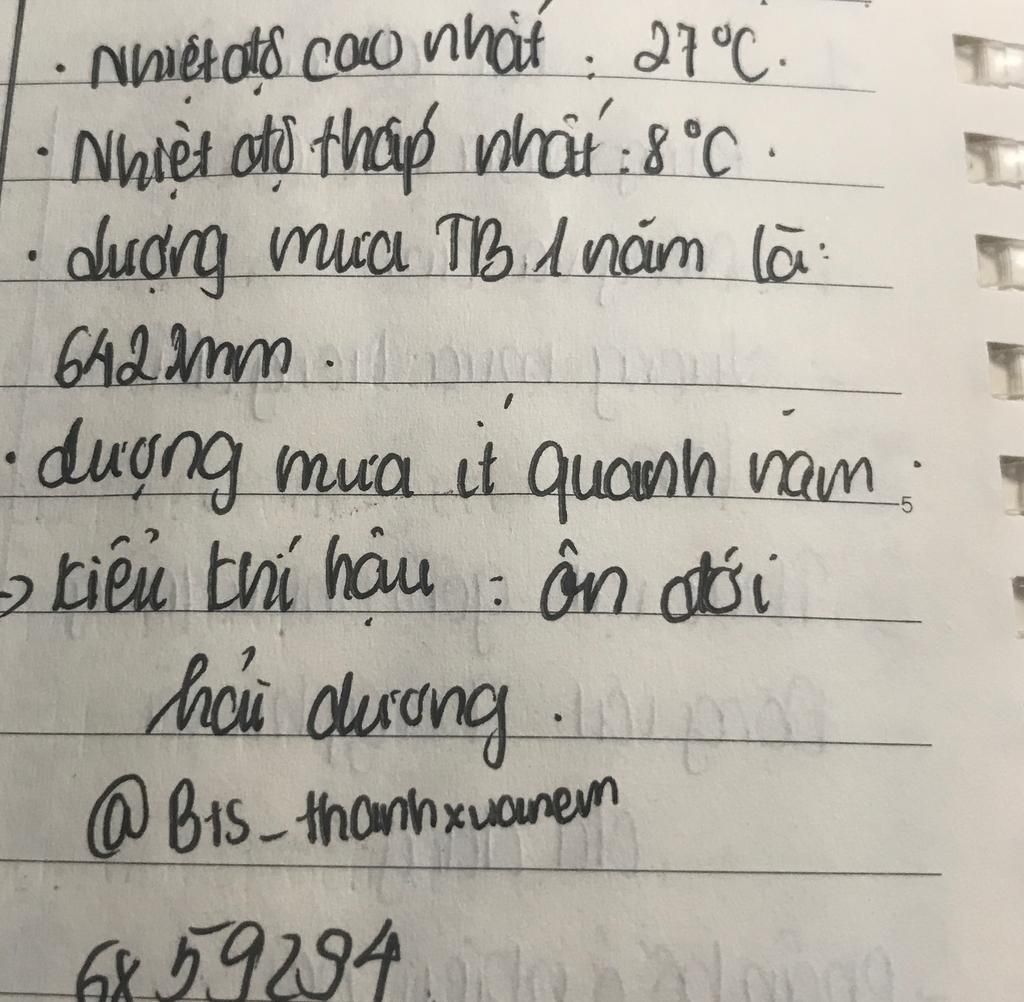 • Nhiệt độ cao nhất : 27°C.
• Nhiệt độ thấp nhất : 8°C.
• dượng mưa TB 1 năm là :
6421mm.
• dượng mưa ít quanh năm.
5
→ kiểu khí hậu : ôn đới
hải dương.
@Bts_thanhxuanem
6859294